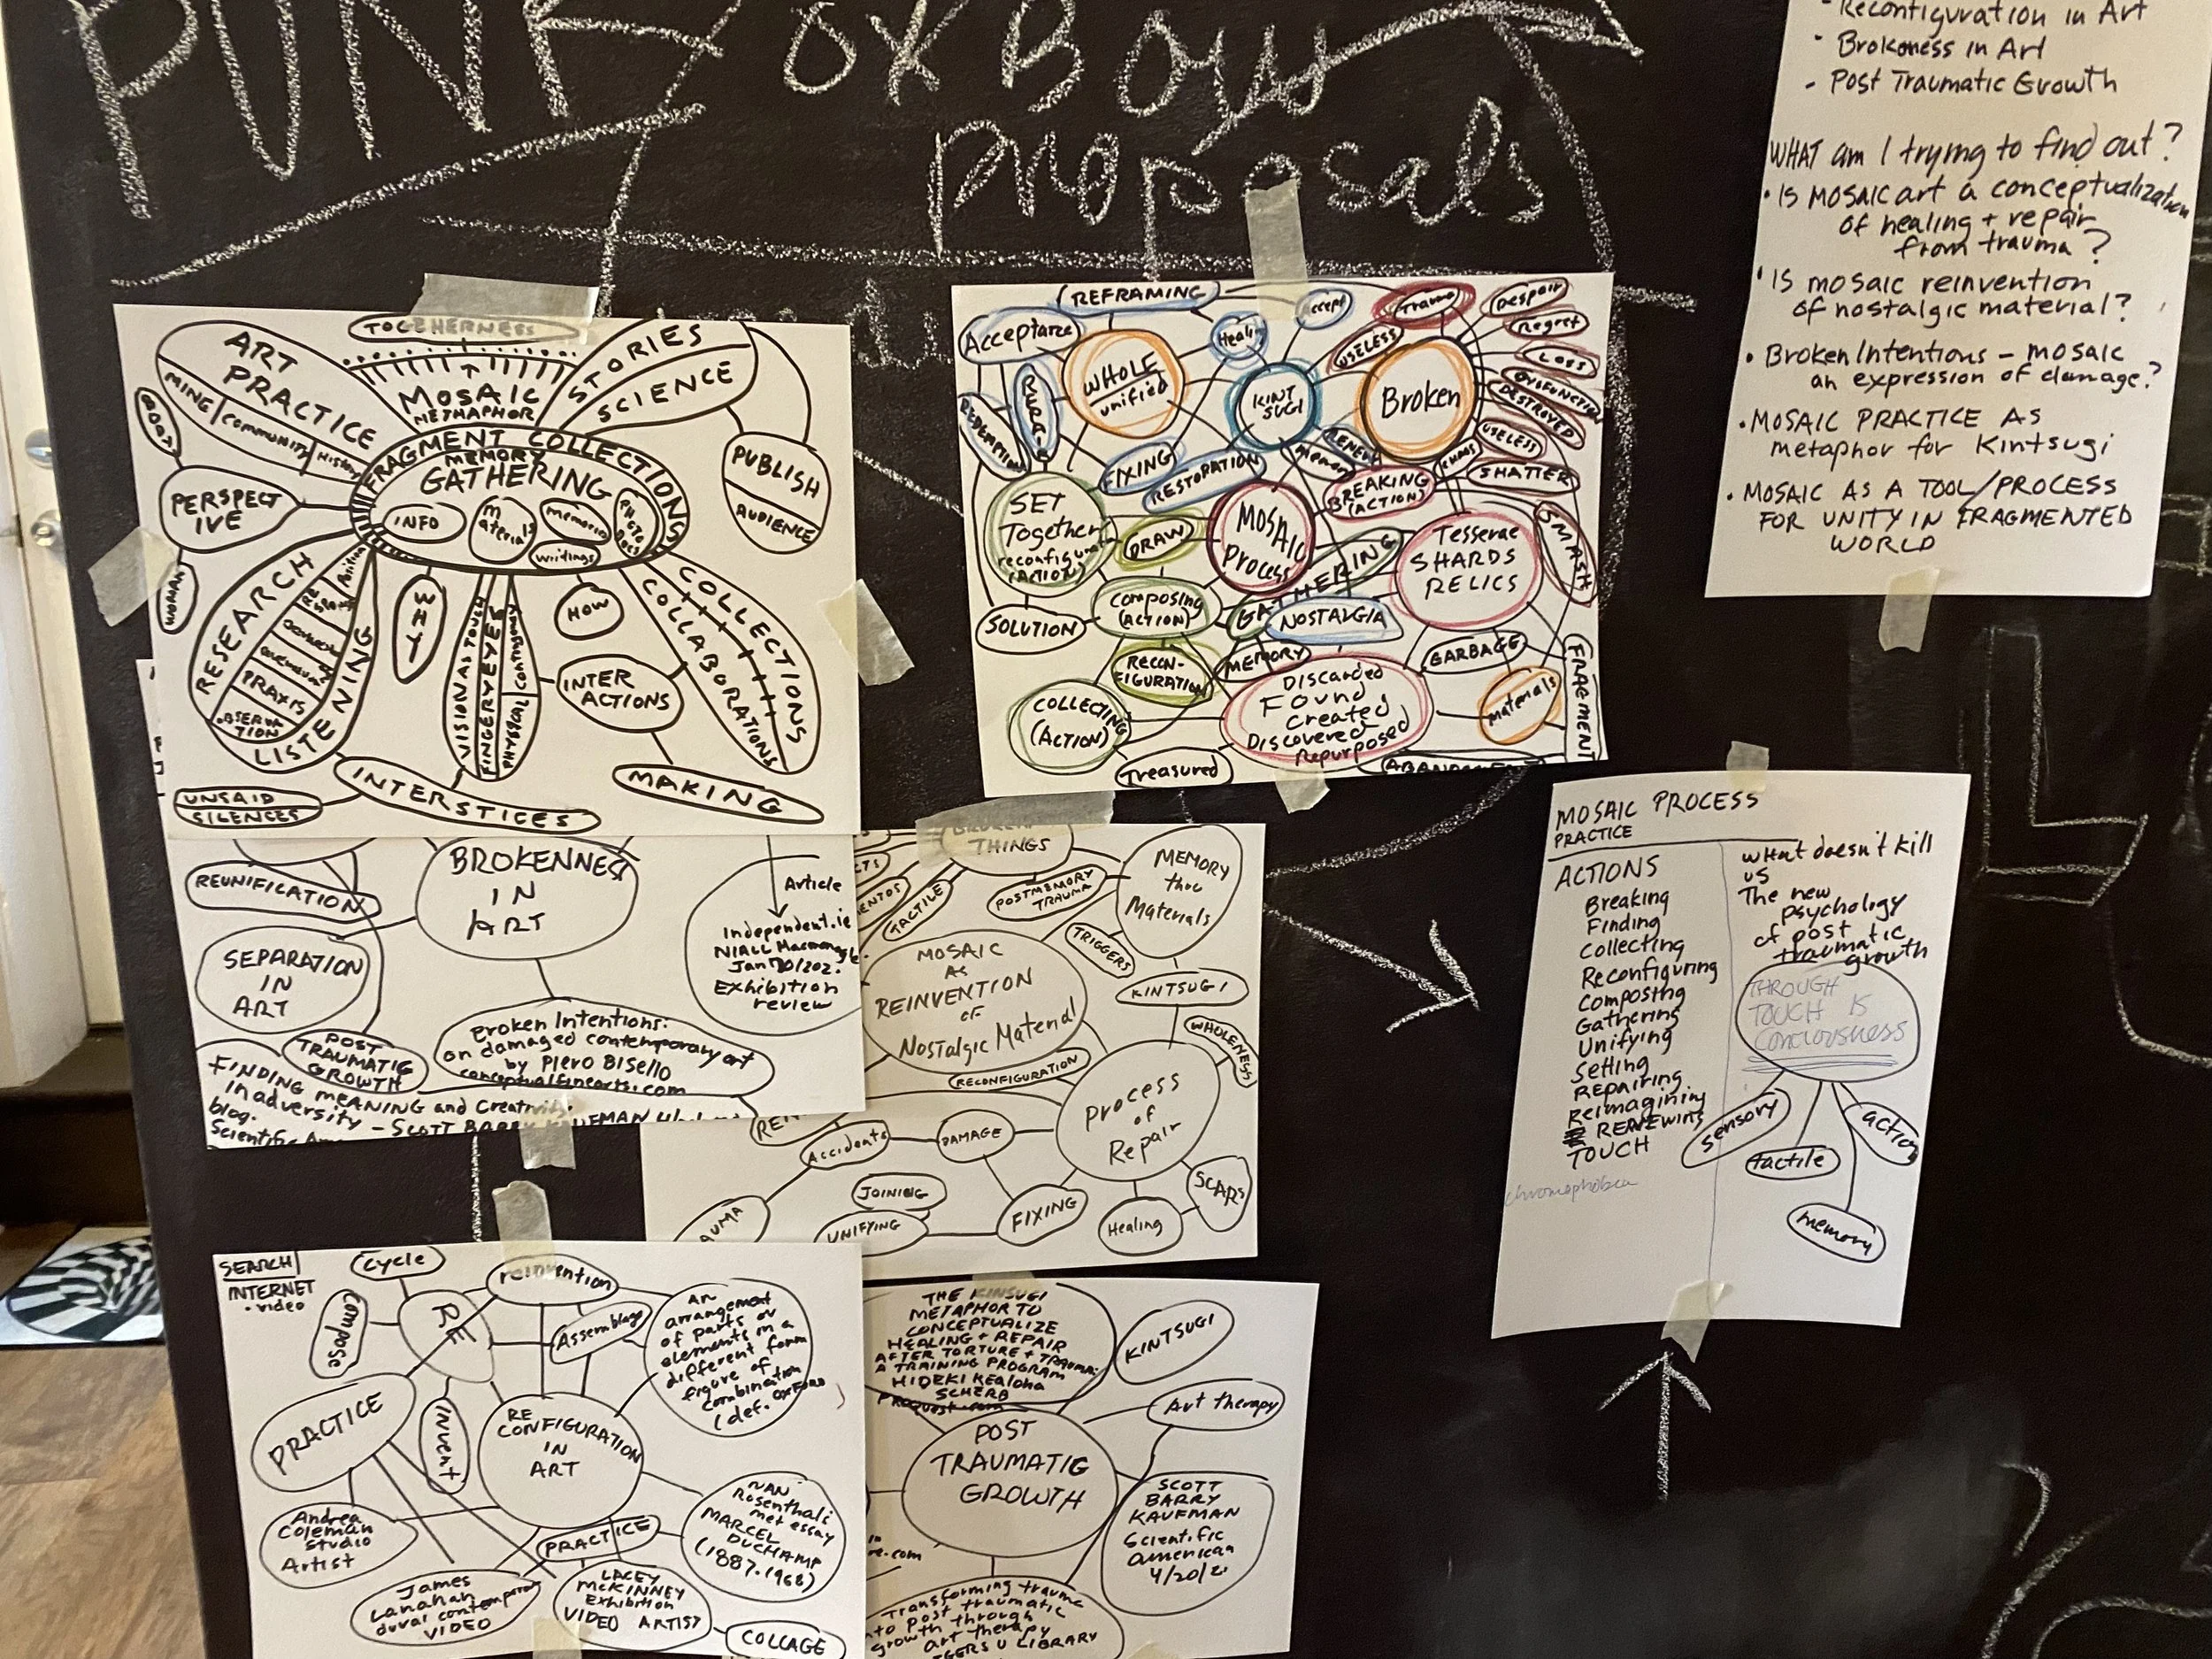 PUNK
OxBow
proposals
- Reconfiguration in Art
- Brokeness in Art
- Post Traumatic Growth
WHAT am I trying to find out?
• IS MOSAIC art a conceptualization
of healing + repair
from trauma?
• IS mosaic reinvention
of nostalgic material?
• Broken Intentions – mosaic
an expression of damage?
• MOSAIC PRACTICE AS
metaphor for Kintsugi
• MOSAIC AS A TOOL/PROCESS
FOR UNITY IN FRAGMENTED
WORLD
TOGETHERNESS
ART
PRACTICE
MING/COMMUNITY/HISTORY
MOSAIC
METAPHOR
STORIES
SCIENCE
BODY
PERSPECT
IVE
WOMAN
FRAGMENT COLLECTIONS
MEMORY
GATHERING
INFO
Materials
Memories
Writings
PHOTO
PUBLISH
AUDIENCE
RESEARCH
PRAXIS
OBSERVA
TION
LISTENING
WHY
VISION AS TOUCH
FINGERYEYES
PHYSICAL
HOW
INTER
ACTIONS
COLLECTIONS
COLLABORATIONS
INTERSTICES
UNSAID
SILENCES
MAKING
REFRAMING
Acceptance
Healing
Accept
Trauma
Despair
Regret
LOSS
DYSFUNCTION
DESTROYED
USELESS
SHATTER
USELESS
WHOLE
unified
KINT
SUGI
Broken
REPAIR
REDEMPTION
FIXING
RESTORATION
RENEW
Memory
CHAOS
BREAKING
(ACTION)
SMASH
SET
Together
reconfigure
(ACTION)
DRAW
MOSAIC
Process
GATHERING
Tesserae
SHARDS
RELICS
SOLUTION
Composing
(ACTION)
NOSTALGIA
RECON-
FIGURATION
MEMORY
GARBAGE
Materials
FRAGMENT
COLLECTING
(ACTION)
Discarded
Found
Created
Discovered
Repurposed
Treasured
REUNIFICATION
BROKENNESS
IN
ART
SEPARATION
IN
ART
Article
Independent.ie
Exhibition
review
POST
TRAUMATIC
GROWTH
Broken Intentions:
on damaged contemporary art
by Piero Bisello
conceptualfinearts.com
FINDING MEANING and Creativity
in adversity – SCOTT BARRY KAUFMAN
blog.
BROKEN
THINGS
TACTILE
POSTMEMORY
TRAUMA
MEMORY
thru
Materials
TRIGGERS
KINTSUGI
MOSAIC
AS
REINVENTION
OF
Nostalgic Material
RECONFIGURATION
WHOLENESS
Process
of
Repair
Accidents
DAMAGE
JOINING
UNIFYING
FIXING
Healing
SCARS
MOSAIC PROCESS
PRACTICE
ACTIONS
Breaking
Finding
Collecting
Reconfiguring
Composing
Gathering
Unifying
Setting
Repairing
Reimagining
TOUCH
chromophobia
What doesn't kill
us
The new
psychology
of post
traumatic
growth
THROUGH
TOUCH IS
Conciousness
sensory
tactile
action
memory
SEARCH
INTERNET
• video
cycle
Compose
RE
reinvention
Assemblage
An
arrangement
of parts or
elements in a
different form
figure of
combination
(def. OXFORD
PRACTICE
INVENT
RE
CONFIGURATION
IN
ART
Andrea
Coleman
Studio
Artist
PRACTICE
NAN
Rosenthal
met essay
MARCEL
DUCHAMP
(1887-1968)
James
Lanahan
duval contemporary
VIDEO
LACEY
McKINNEY
Exhibition
VIDEO ARTIST
COLLAGE
THE KINSUGI
METAPHOR TO
CONCEPTUALIZE
HEALING + REPAIR
AFTER TORTURE + TRAUMA:
A TRAINING PROGRAM
HIDEKI Kealoha
SCHERB
Proquest.com
KINTSUGI
Art therapy
POST
TRAUMATIC
GROWTH
SCOTT
BARRY
KAUFMAN
Scientific
american
Transforming trauma
to post traumatic
growth through
art therapy